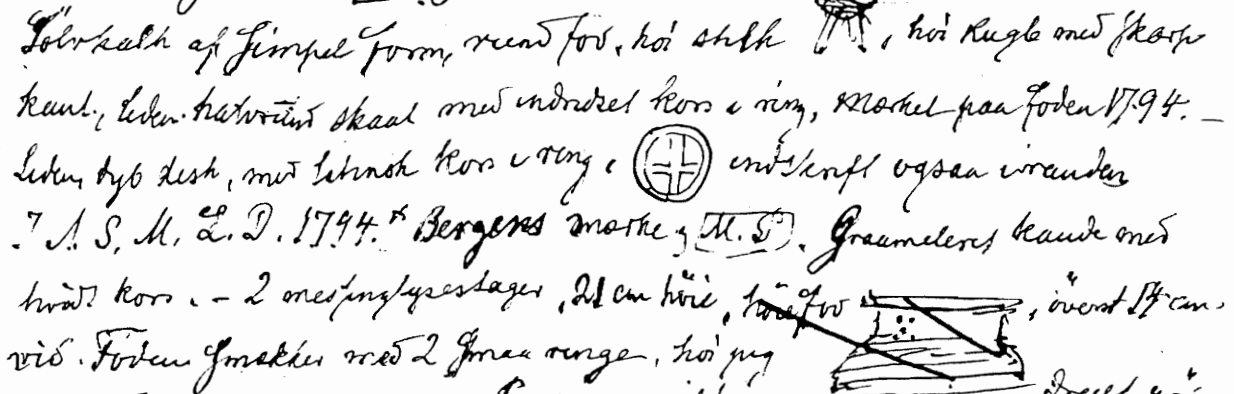 Sölvkalk af simpel form, rund fod, höi stilk, höi Kugle med skarp
kant, liden halvrund skaal med indridset kors i ring, Mærket paa foden 1794. –
Liden, dyb disk, med latinsk kors i ring, indskrift ogsaa i randen
A. S. M. L. D. 1794. * Bergens mærke og M. S. Graameleret kande med
hvidt kors. – 2 messinglysestager, 21 cm höie, fod, överst 14 cm.
vid. Foden smækker med 2 smaa ringe, höi